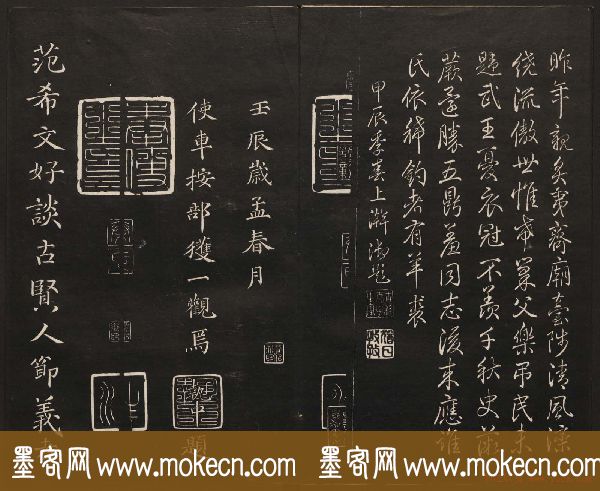 昨年親奠夷齊廟臺陟清風
繞流傲世惟希巢父樂吊民未
題武王憂衣冠不羨千秋史薇
蕨還勝五鼎羞同志後來應誰
氏依稀釣者有羊裘
甲辰季春上澣御題
壬辰歲孟春月
使車按部獲一觀焉
題
范希文好談古賢人節義
墨客网 www.mokecn.com 墨客网 www.mokecn.com